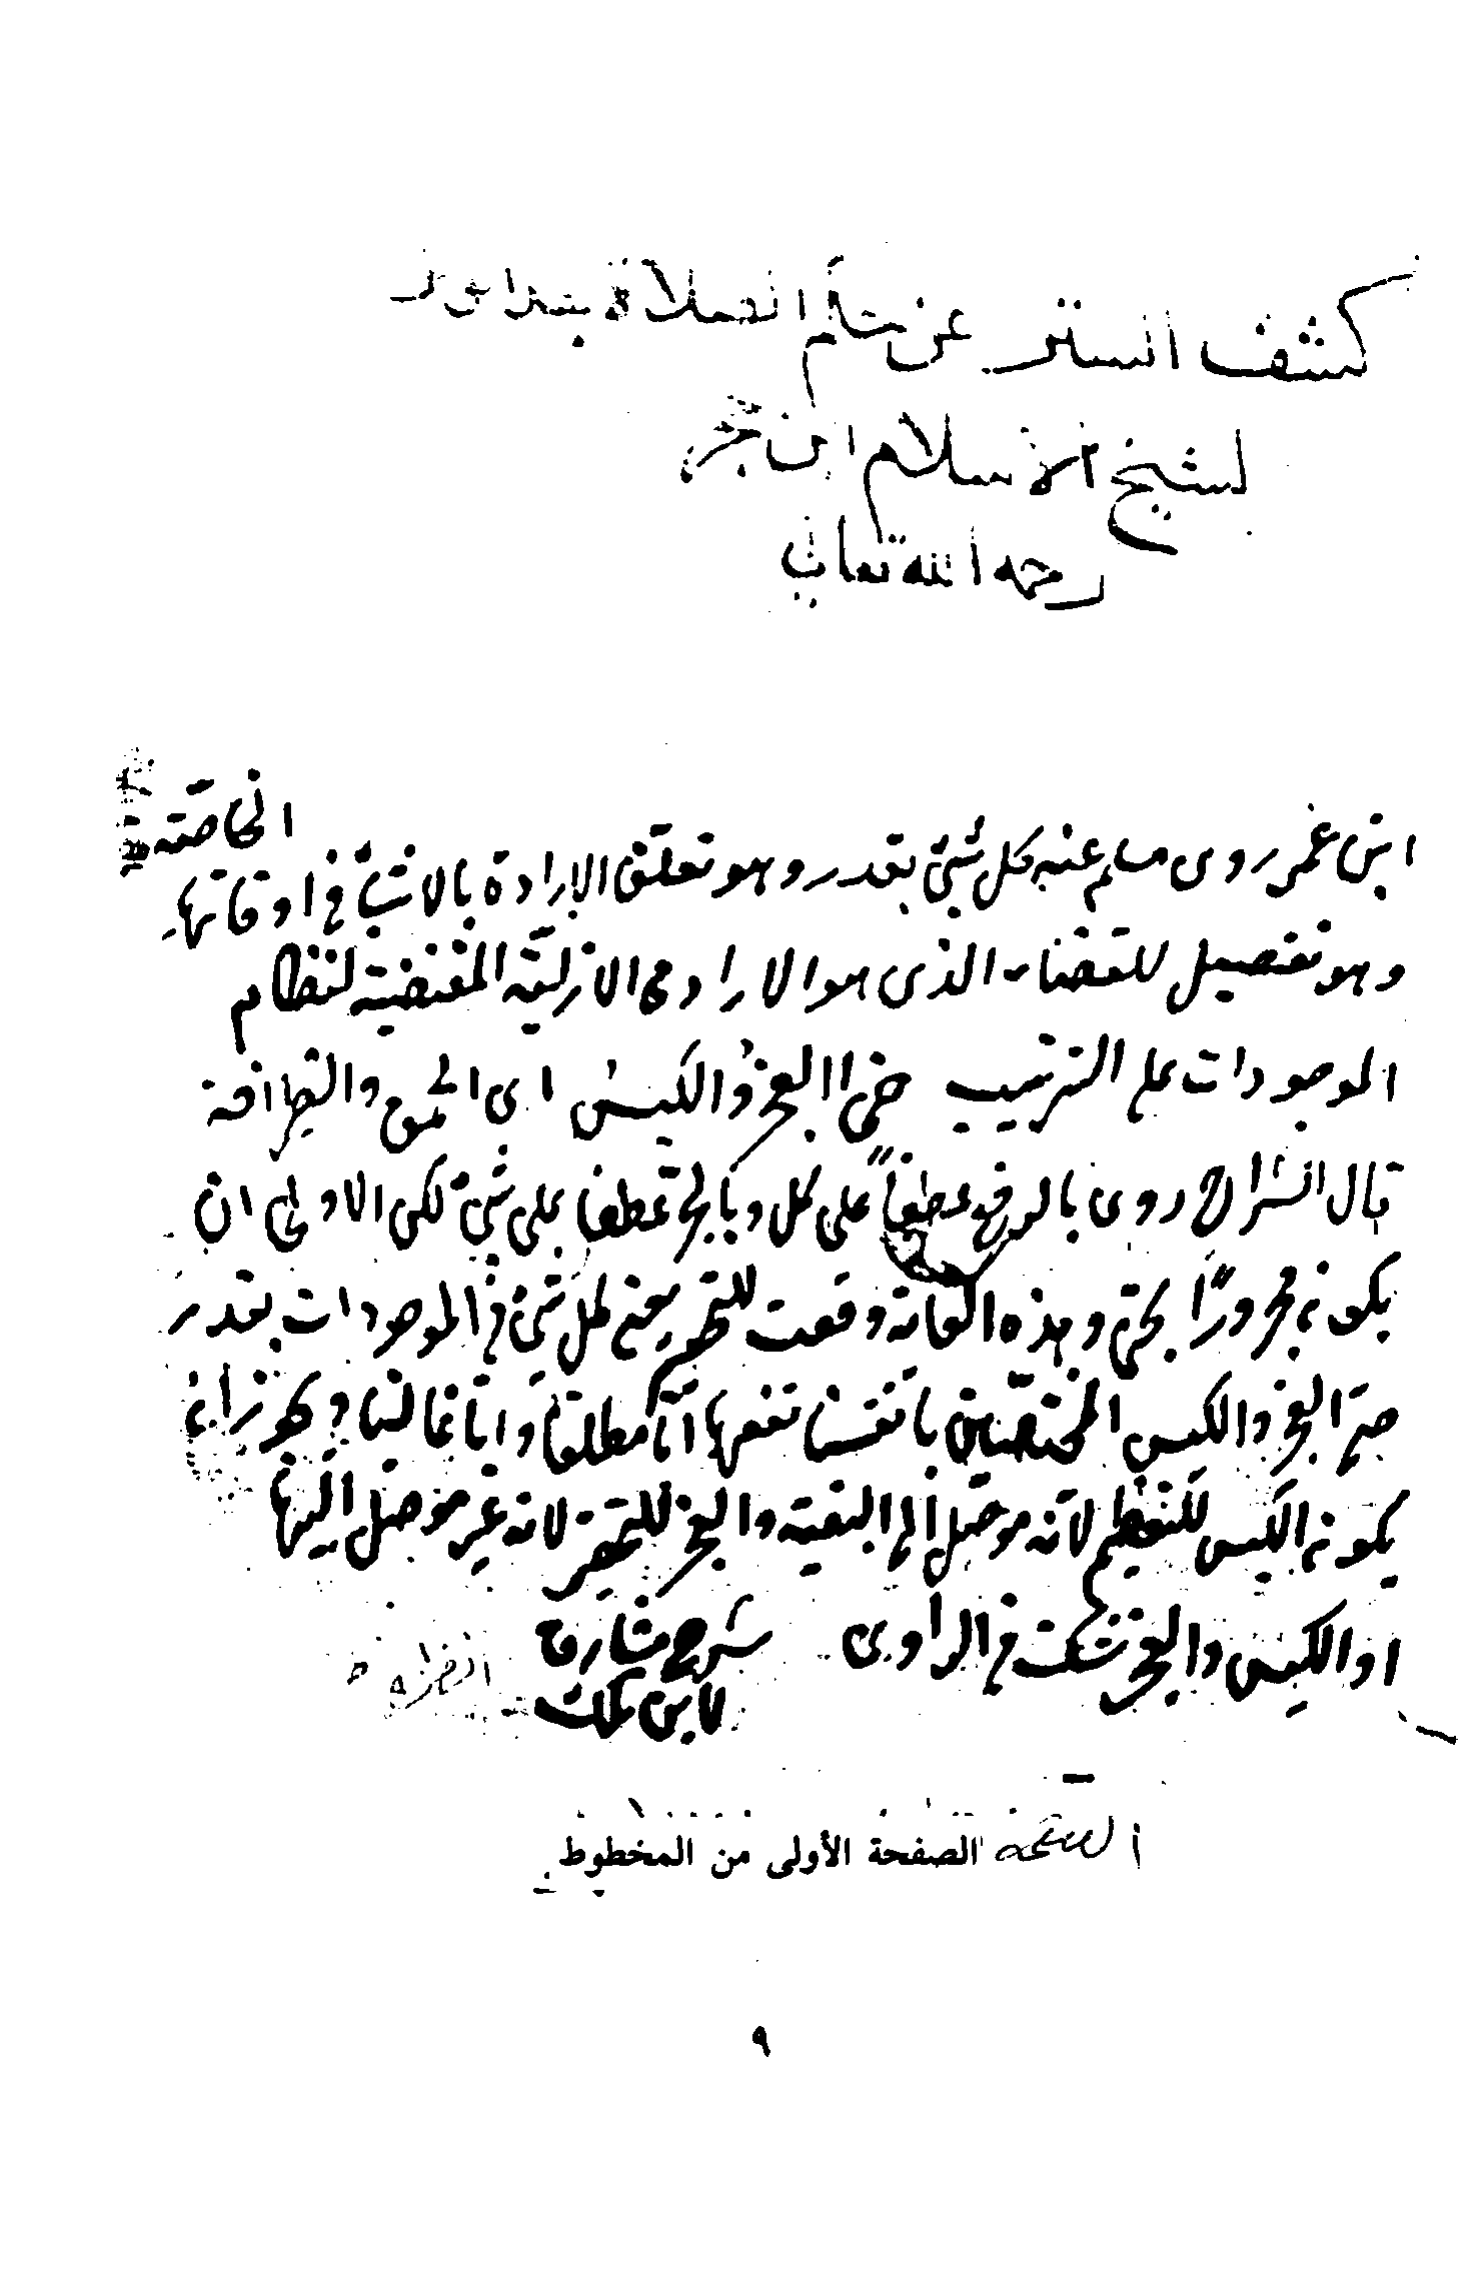 كشف الستر عن حكم الصلاة بعد الوتر
لشيخ الاسلام ابن حجر
رحمه الله تعالى
الخاصة
ابن عمر روى مسلم عنه كل شئ بقدر وهو تعلق الإرادة بالاشياء في اوقاتها
وهو تفصيل للقضاء الذى هو الارادة الازلية المقتضية لنظام
الموجودات على الترتيب حتى العجز والكيس اى الحمق والظرافة
قال الشراح روى بالرفع عطفاً على كل وبالجر عطفا على شئ لكن الاولى ان
يكون مجرورًا بحتى وهذه الغاية وقعت للتحقير يعنى كل شئ في الموجودات بقدر
حتى العجز والكيس المختصين بانفسنا نفعها امّا مطلقا وامّا غالبا ويجوز ان
يكون الكيس للتعظيم لانه موصل الى البغية والعجز للتحقير لانه غير موصل اليها
او الكيس والعجز شك في الراوى شرح مشارق
لابن ملك
الصفحة الصفحة الأولى من المخطوط
٩